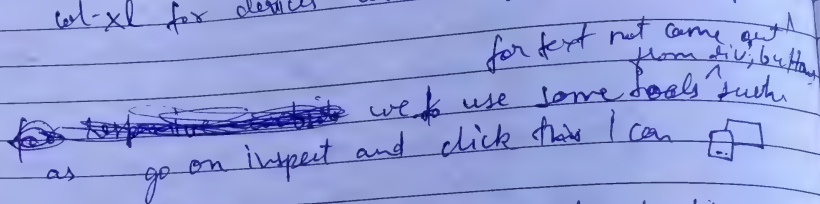 col-xl for devices
for text not come out
from div, button
we use some tools such
as go on inspect and click this I can